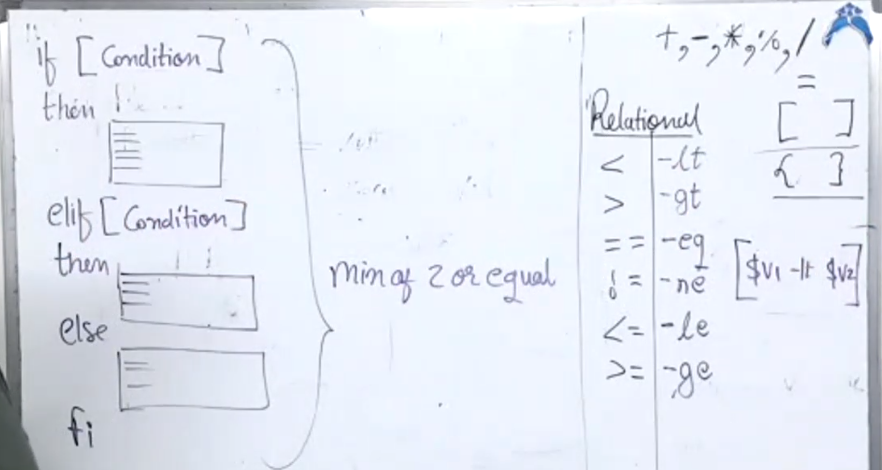 if [ Condition ]
then
elif [ Condition ]
then
else
fi
Min of 2 or equal
+, -, *, %, /
=
[ ]
{ }
Relational
< -lt
> -gt
== -eq
!= -ne
<= -le
>= -ge
[$V1 -lt $V2]